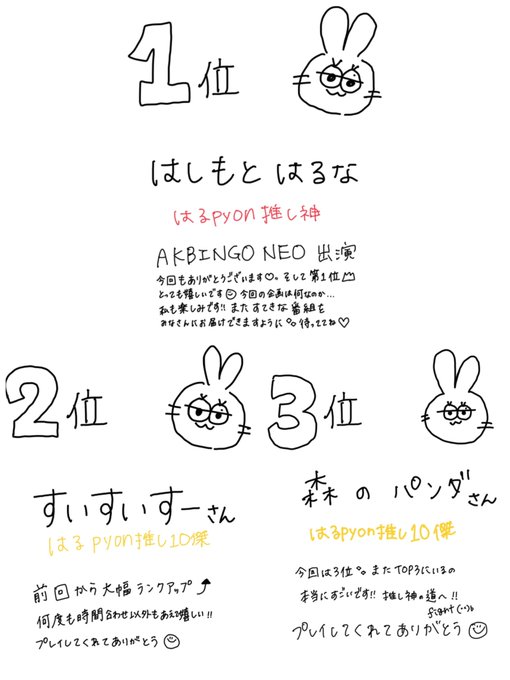 1位
はしもと はるな
はるpyon推し神
AKBINGO NEO 出演
今回もありがとうございます♡。そして第1位👑
とっても嬉しいです☺ 今回の企画は何なのか...
私も楽しみです!! また すてきな番組を
みなさんにお届けできますように°。待っててね♡
2位
すいすいすーさん
はるpyon推し10傑
前回から大幅ランクアップ⤴
何度も時間合わせ以外もあえて嬉しい!!
プレイしてくれてありがとう☺
3位
森のパンダさん
はるpyon推し10傑
今回は3位°。また TOP3にいるの
本当にすごいです!! 推し神の道へ!!
fight
プレイしてくれてありがとう☺